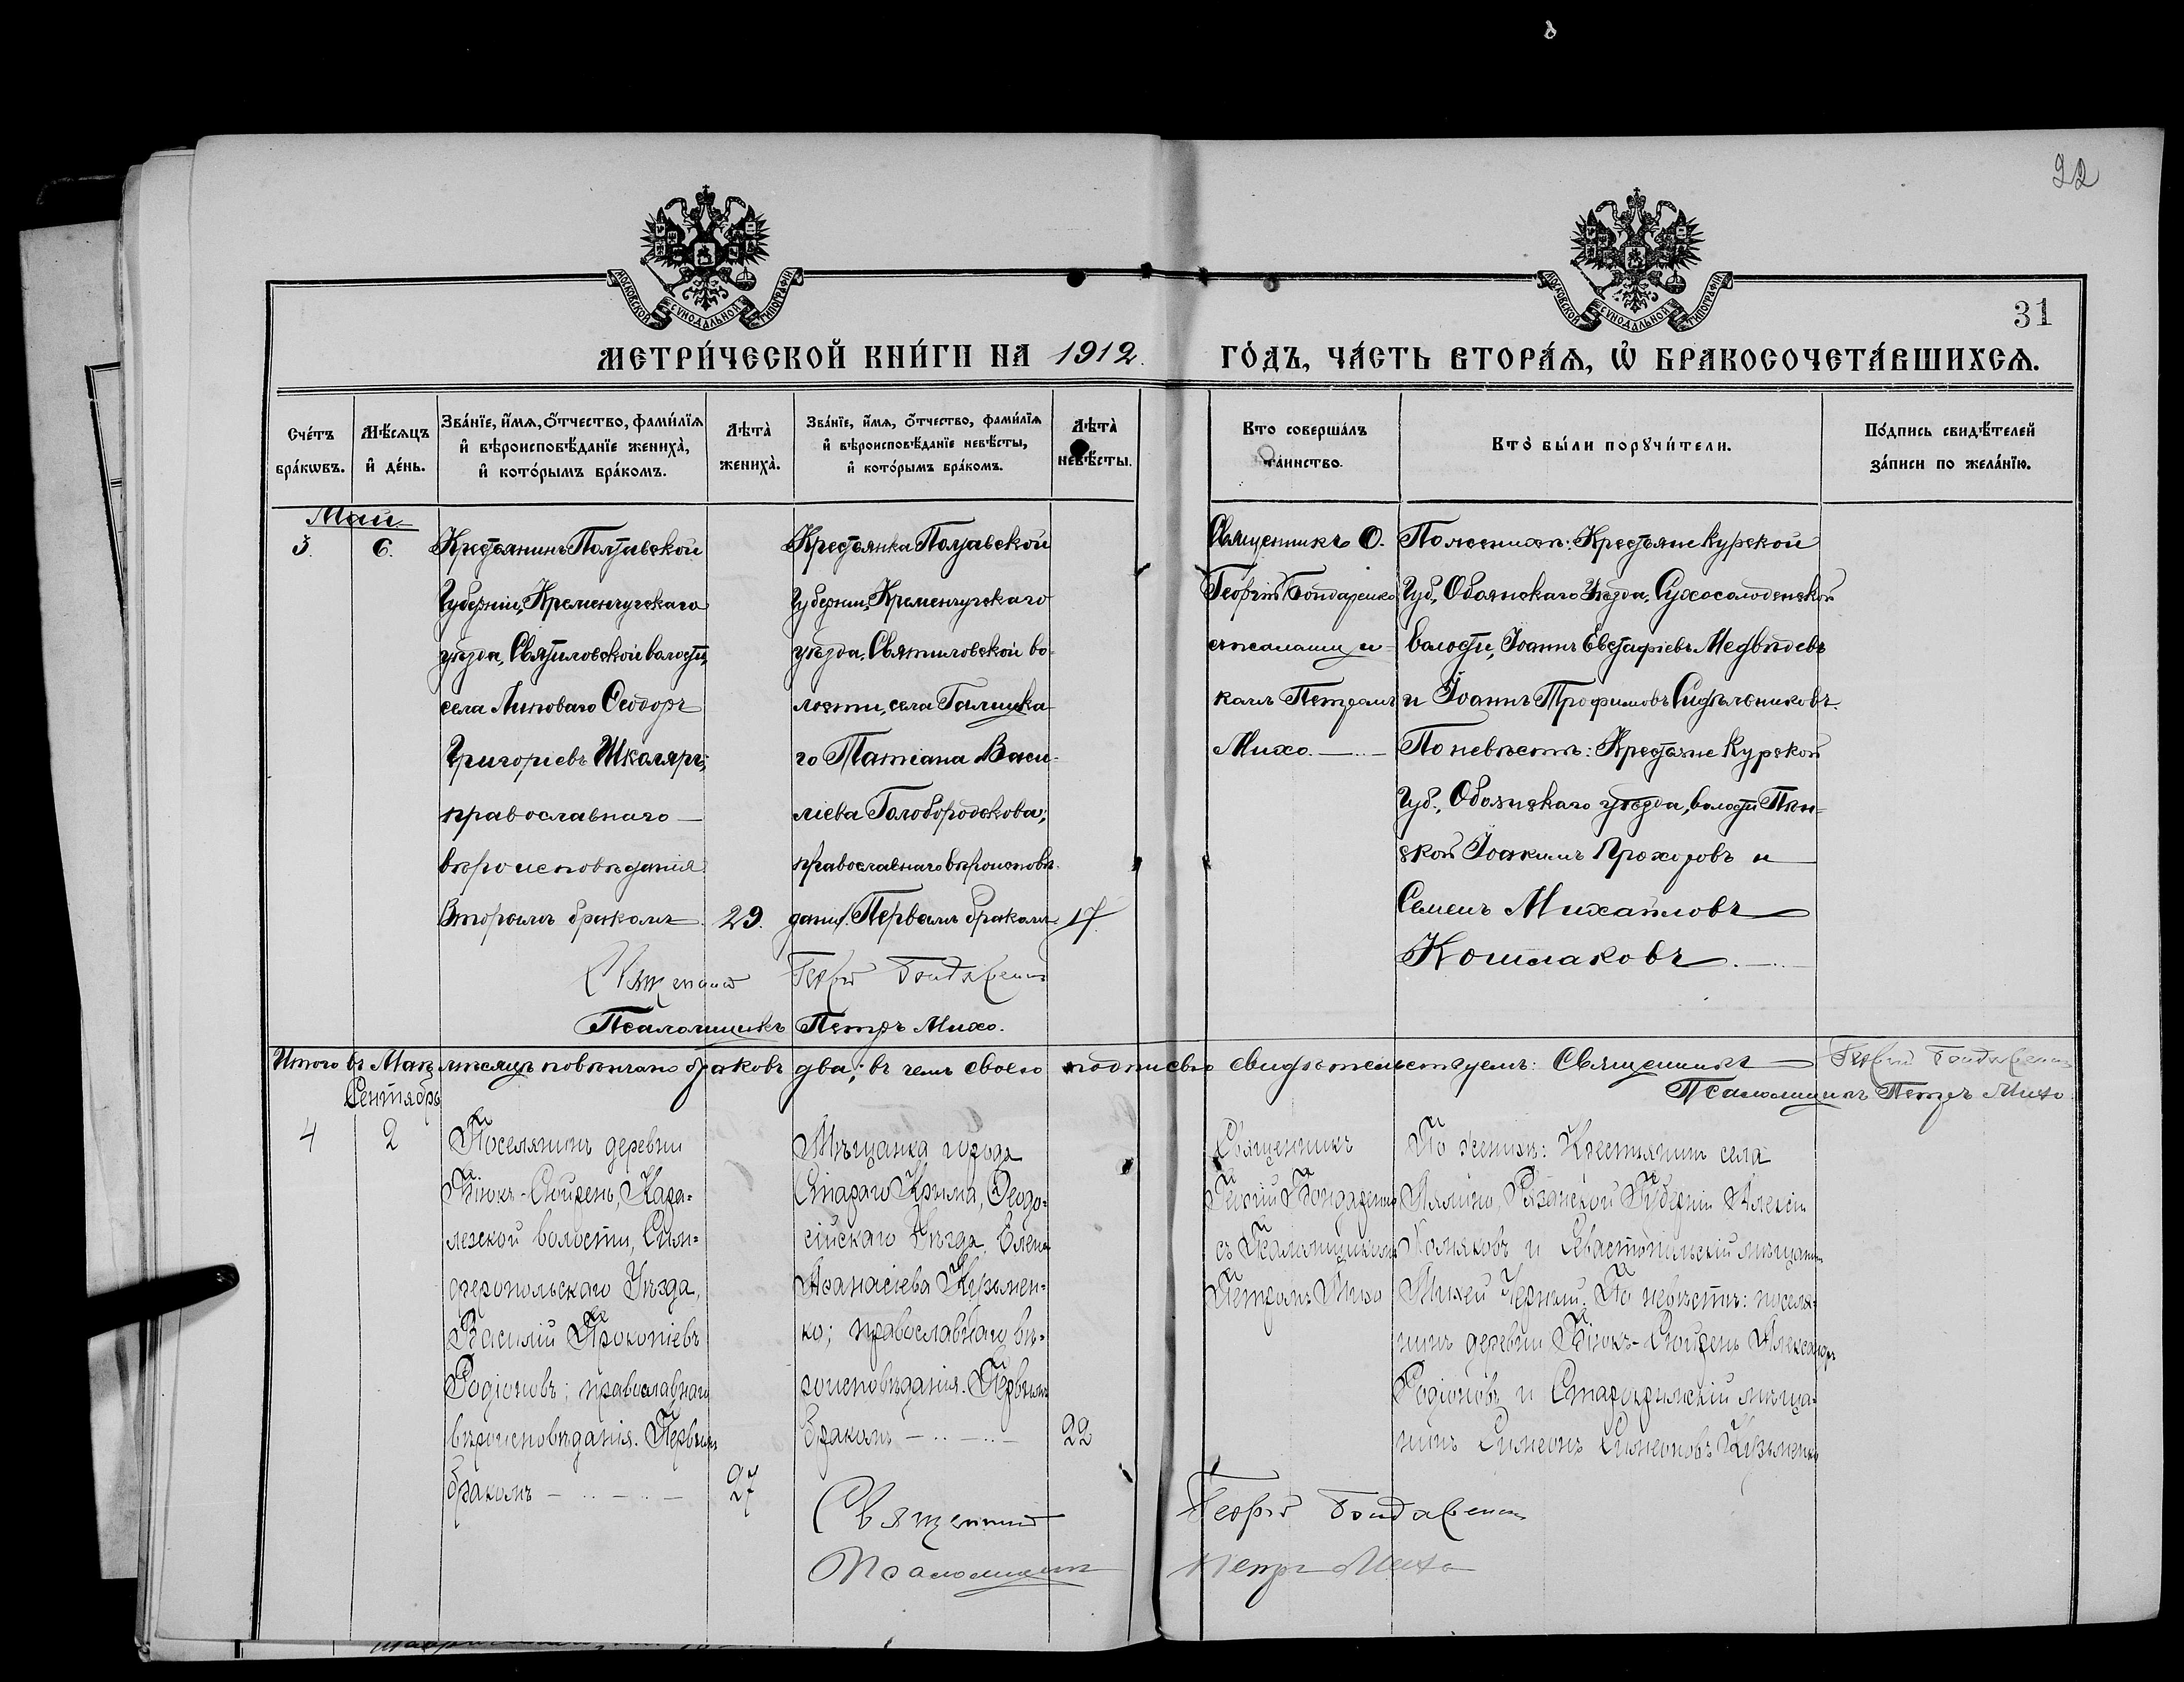 22
МОСКОВСКОЙ СѴНОДАЛЬНОЙ ТИПОГРАФІИ
МОСКОВСКОЙ СѴНОДАЛЬНОЙ ТИПОГРАФІИ
31
МЕТРИ́ЧЕСКОЙ КНИ́ГИ НА 1912. ГО́ДЪ, ЧА́СТЬ ВТОРА́Ѧ, Ѡ҆ БРАКОСОЧЕТА́ВШИХСѦ.
Сче́тъ
бра́кѡвъ.
Мѣ́сѧцъ
и҆ де́нь.
Зва́нїе, и҆́мѧ, о҆́тчество, фами́лїѧ
и҆ вѣроисповѣ́данїе жениха̀,
и҆ кото́рымъ бра́комъ.
Лѣта̀
жениха̀.
Зва́нїе, и҆́мѧ, о҆́тчество, фами́лїѧ
и҆ вѣроисповѣ́данїе невѣ́сты,
и҆ кото́рымъ бра́комъ.
Лѣта̀
невѣ́сты.
Кто совершалъ
та́инство.
Кто̀ бы́ли порꙋчи́тели.
По́дпись свидѣ́телей
за́писи по жела́нїю.
Май
3. 6.
Крестьянинъ Полтавской
Губерніи, Кременчугскаго
уѣзда, Святиловской волости,
села Липоваго Ѳеодоръ
Григоріевъ Школяръ;
православнаго
вѣроисповѣданія
Вторымъ бракомъ. 29.
Крестьянка Полтавской
Губерніи, Кременчугскаго
уѣзда, Святиловской во-
лости, села
го Татіана Васи-
ліева Голобородскова;
православнаго вѣроисповѣ-
данія. Первымъ бракомъ. 17
Священникъ О.
Георгій Бондаренко
съ псаломщи-
комъ Петромъ
Михо.
По женихѣ: Крестьяне Курской
Губ., Обоянскаго уѣзда, Сухосолоденской
волости, Іоаннъ Евстафіевъ Медвѣдевъ
и Іоаннъ Трофимовъ Сидѣльниковъ.
По невѣстѣ: Крестьяне Курской
Губ., Обоянскаго уѣзда, волости Пѣн-
ской Іоакимъ Прохоровъ и
Семенъ Михайловъ
Кошлаковъ.
Священникъ Георгій Бондаренко
Псаломщикъ Петръ Михо.
Итого въ Маѣ мѣсяцѣ повѣнчано браковъ два; въ чемъ своею подписью свидѣтельствуемъ: Священникъ Георгій Бондаренко
Псаломщикъ Петръ Михо
Сентябрь
4 2
Поселянинъ деревни
Біюкъ-Сюйрень, Кара-
лезской волости, Сим-
феропольскаго Уѣзда,
Василій Прокопіевъ
Родіоновъ; православнаго
вѣроисповѣданія. Первымъ
бракомъ 27
Мѣщанка города
Стараго Крыма, Ѳеодо-
сійскаго Уѣзда, Елена
Аѳанасіева Кузьмен-
ко; православнаго вѣ-
роисповѣданія. Первымъ
бракомъ 22
Священникъ
Георгій Бондаренко
съ Псаломщикомъ
Петромъ Михо
По женихѣ: Крестьянинъ села
Рязанской Губерніи Алексій
и Севастопольскій мѣщанинъ
Михей Черный. По невѣстѣ: поселя-
нинъ деревни Біюкъ-Сюйрень Александръ
Родіоновъ и Старокрымскій мѣща-
нинъ Симеонъ Симеоновъ Кузьменко
Священникъ Георгій Бондаренко
Псаломщикъ Петръ Михо